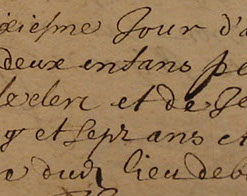 ixiesme Jour d'a
deux enfans pe
leclerc et de Je
g et sept ans et
dud lieu deb